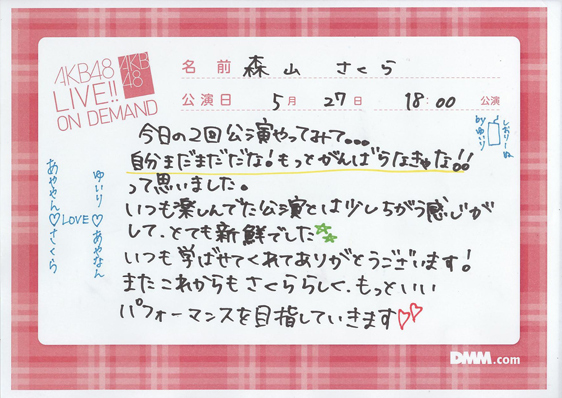 AKB48
LIVE!!
ON DEMAND
AKB
48
名前 森山 さくら
公演日 5月 27日 18:00 公演
今日の2回公演やってみて...
自分まだまだだな!もっとがんばらなきゃな!!
って思いました。
いつも楽しんでた公演とは少しちがう感じが
して、とても新鮮でした
いつも学ばせてくれてありがとうございます!
またこれからもさくららしく、もっといい
パフォーマンスを目指していきます♡♡
ゆいり♡あやなん
LOVE
あややん♡さくら
しおりーぬ
byゆいり
DMM.com